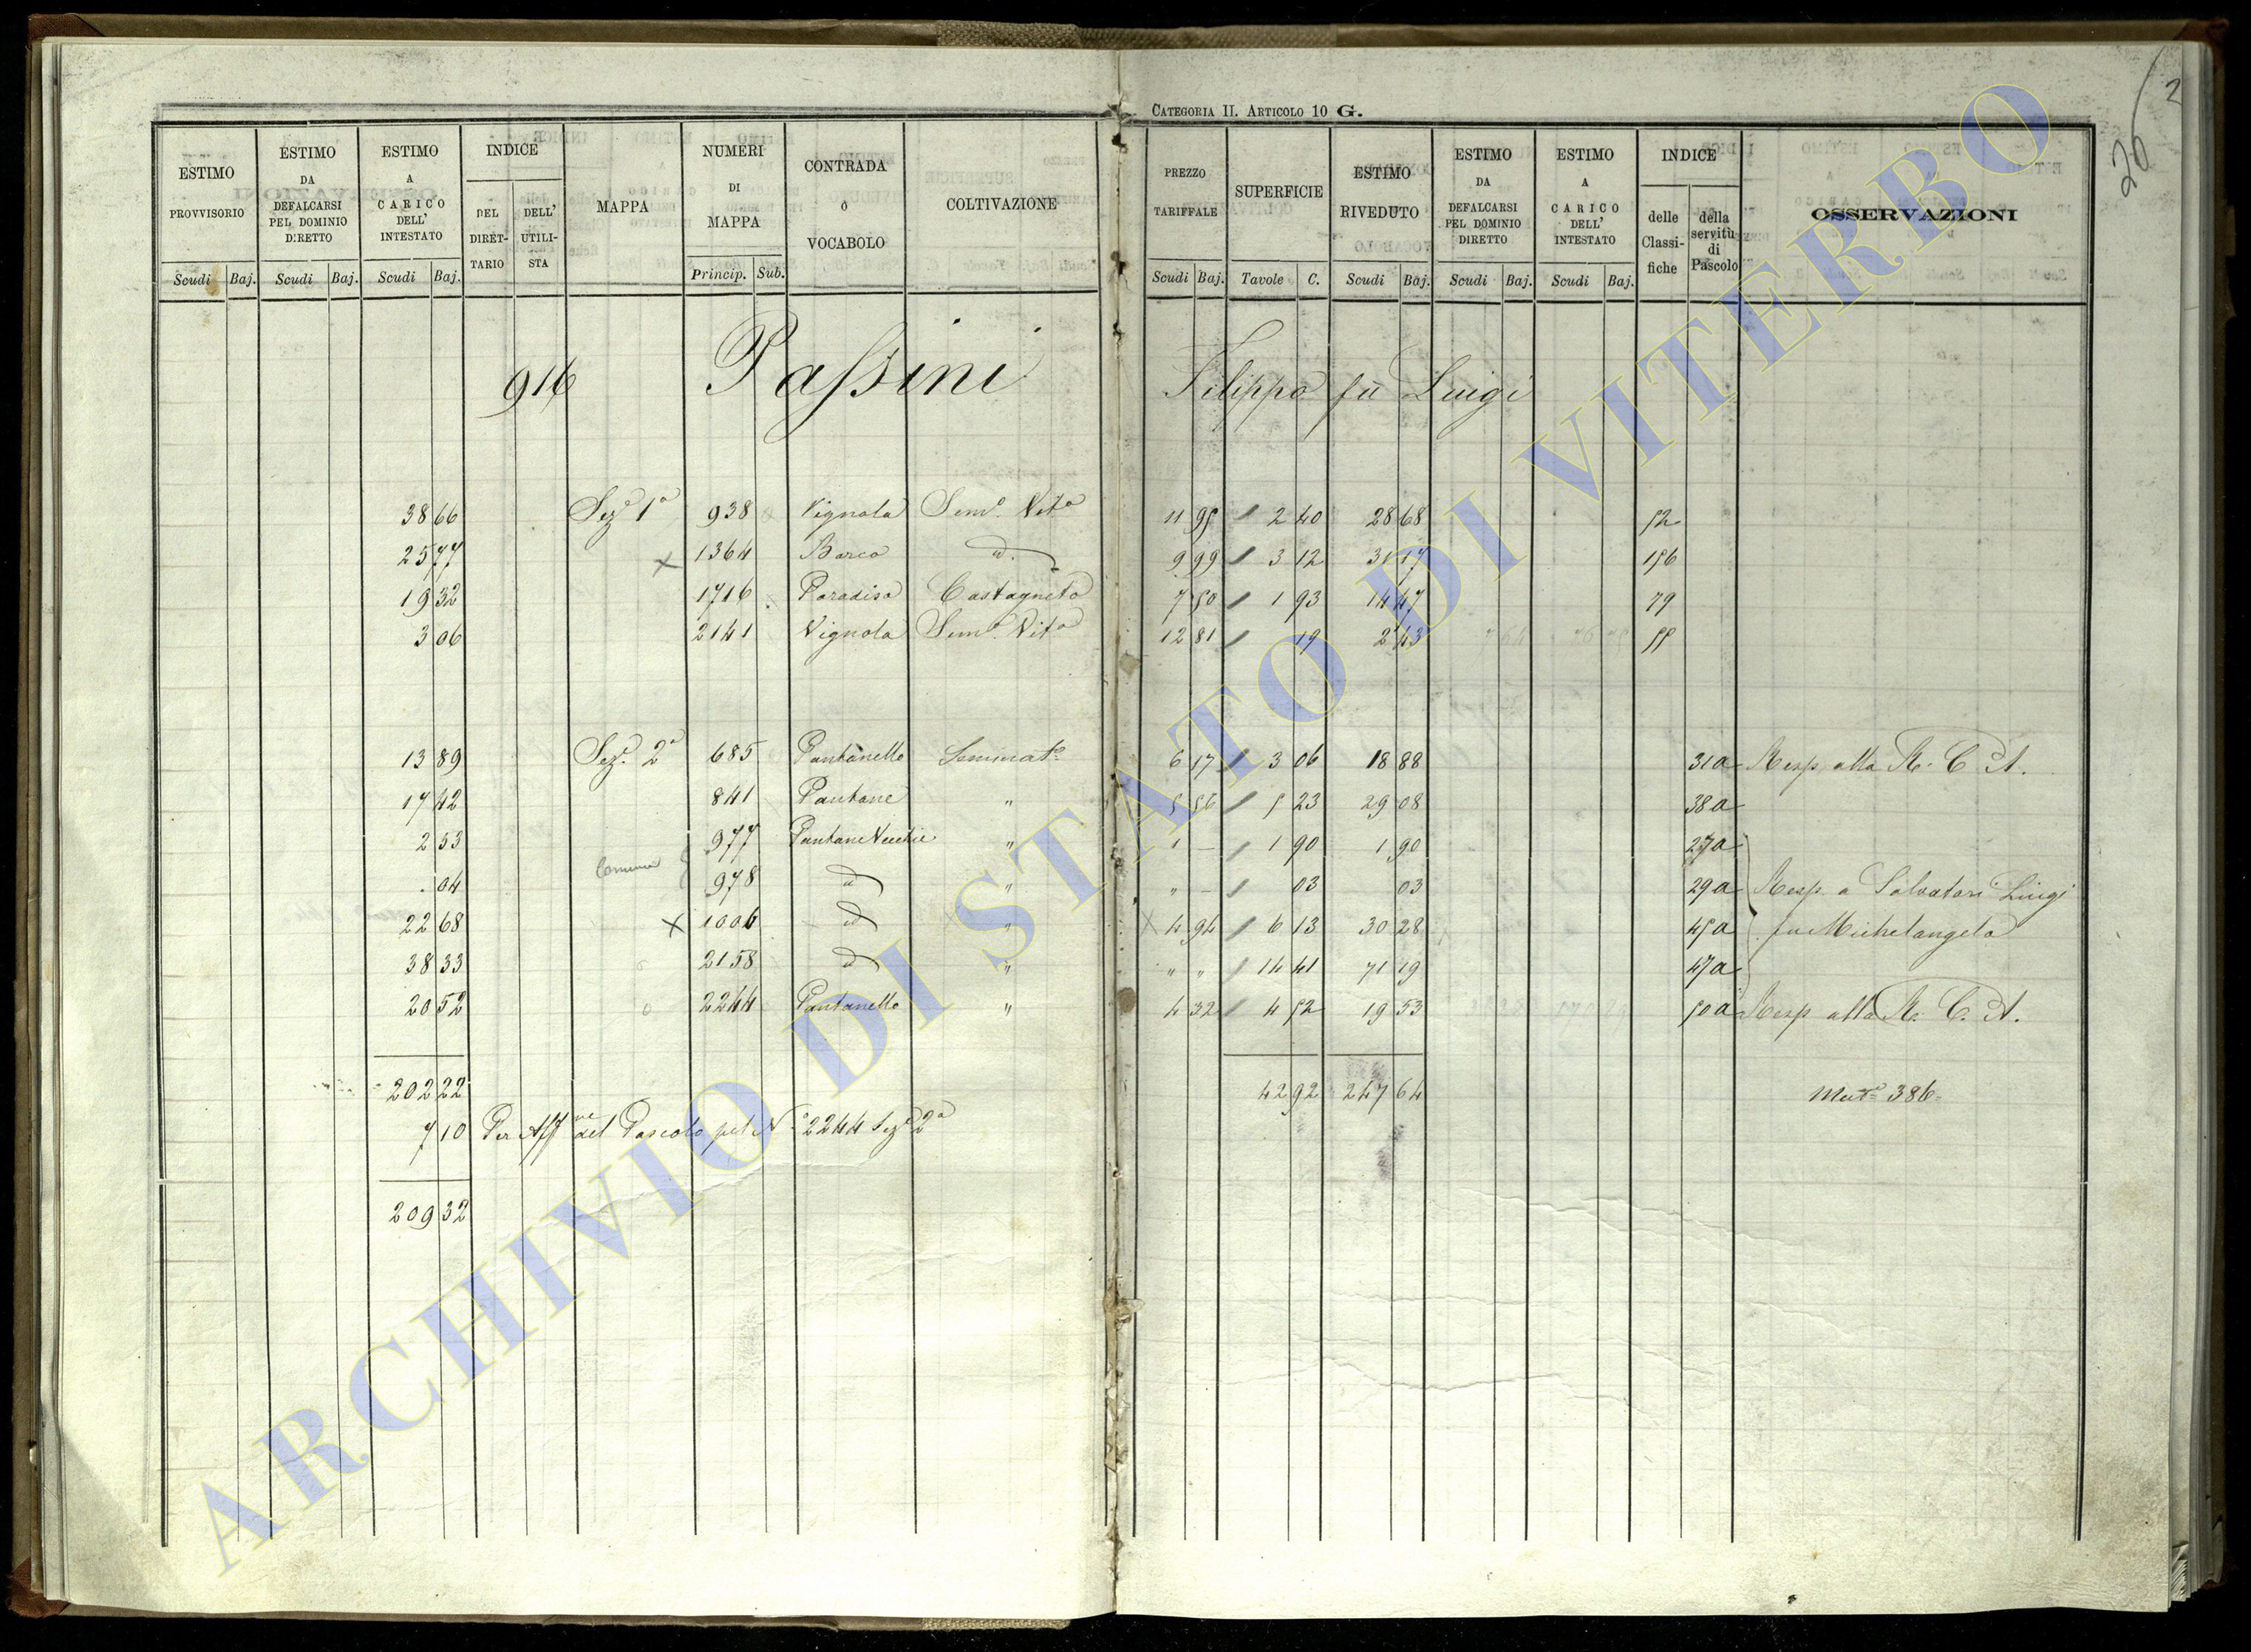 CATEGORIA II. ARTICOLO 10 G.
20
2
ESTIMO PROVVISORIO Scudi Baj.
ESTIMO DA DEFALCARSI PEL DOMINIO DIRETTO Scudi Baj.
ESTIMO A CARICO DELL' INTESTATO Scudi Baj.
INDICE DEL DIRET- TARIO DELL' UTILI- STA
MAPPA
NUMERI DI MAPPA Princip. Sub.
CONTRADA O VOCABOLO
COLTIVAZIONE
PREZZO TARIFFALE Scudi Baj.
SUPERFICIE Tavole C.
ESTIMO RIVEDUTO Scudi Baj.
ESTIMO DA DEFALCARSI PEL DOMINIO DIRETTO Scudi Baj.
ESTIMO A CARICO DELL' INTESTATO Scudi Baj.
INDICE delle Classi- fiche della servitù di Pascolo
OSSERVAZIONI
916 Passini Filippo fu Luigi
38 66 Sez.e 1a 938 Vignola Sem.o Vit.o 11 95 2 40 28 68 52
25 77 x 1364 Barco d. 9 99 3 12 31 17 156
19 32 1716 Paradiso Castagneto 7 50 1 93 14 47 79
3 06 2141 Vignola Sem.o Vit.o 12 81 19 2 43 55
13 89 Sez.e 2a 685 Pantanello Seminat.o 6 17 3 06 18 88 31a Resp. alla R. C. A.
17 42 841 Pantane " 5 56 5 23 29 08 38a
2 53 977 Pantane Vecchie " 1 — 1 90 1 90 27a
. 04 Comune 978 d " " — 03 03 29a Resp. a Salvatori Luigi
22 68 x 1006 d " x 4 94 6 13 30 28 45a fu Michelangelo
38 33 2158 d " " " 14 41 71 19 47a
20 52 2244 Pantanello " 4 32 4 52 19 53 50a Resp alla R. C. A.
202 22 42 92 247 64 Mut.e 386
7 10 Per Aff.ne del Pascolo pel N.o 2244 Sez.e 2a
209 32
ARCHIVIO DI STATO DI VITERBO